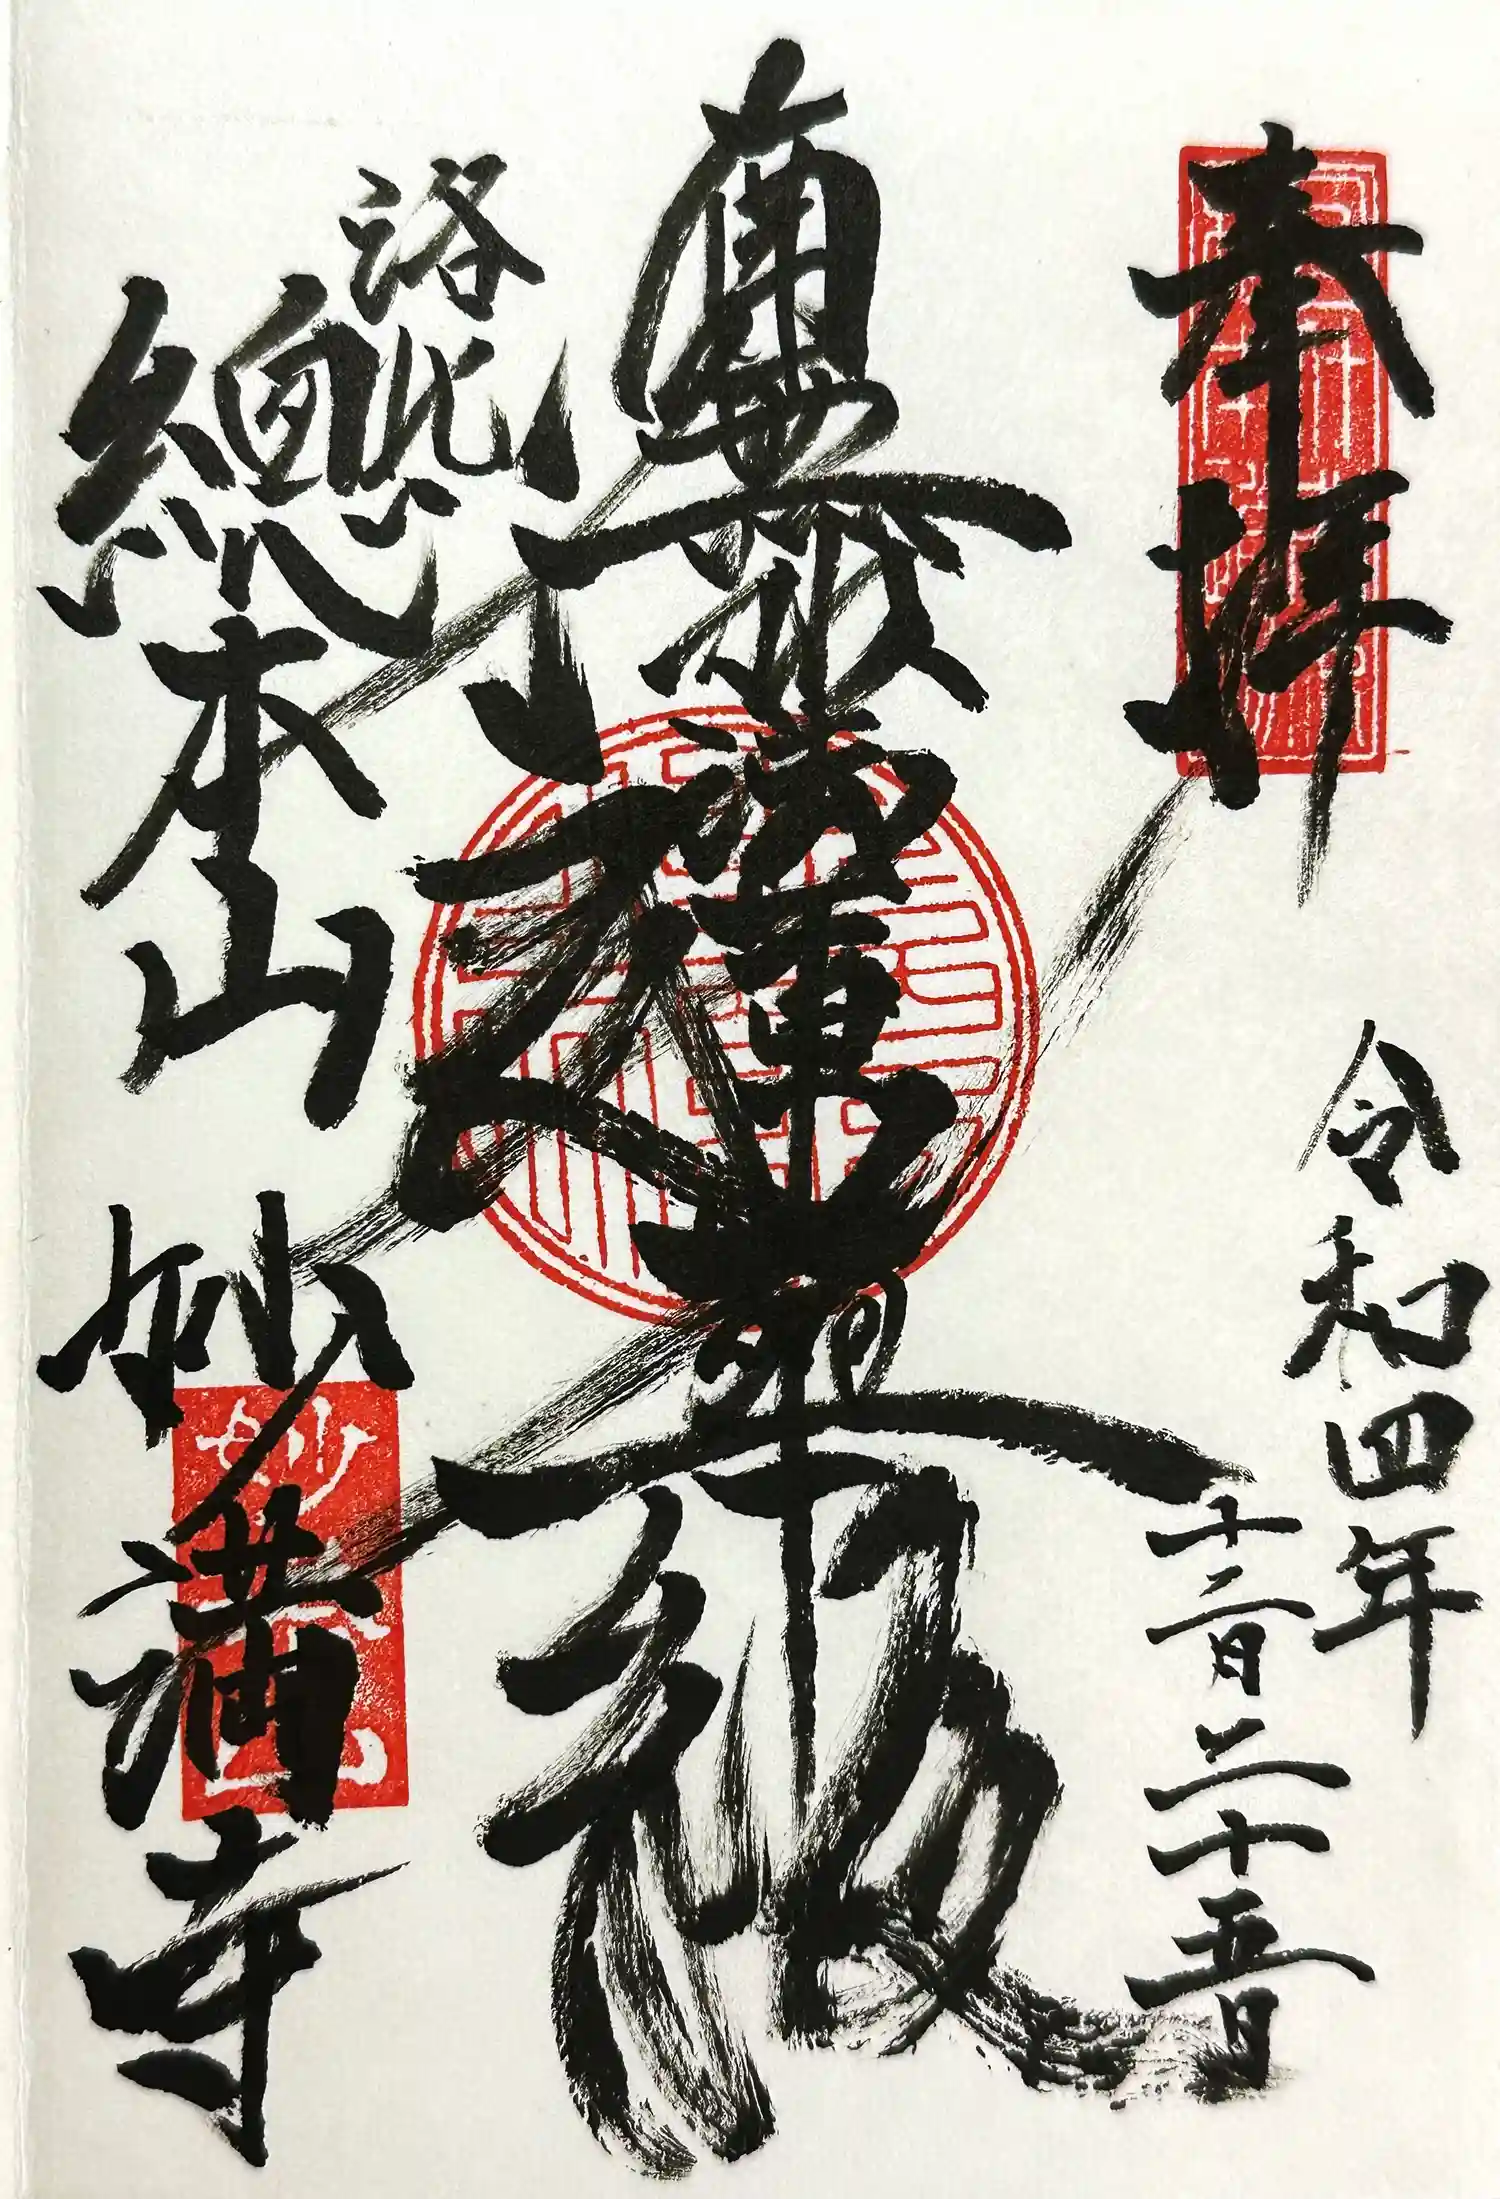 奉拝
令和四年
十二月二十五日
南無妙法蓮華経
洛北
總本山 妙満寺